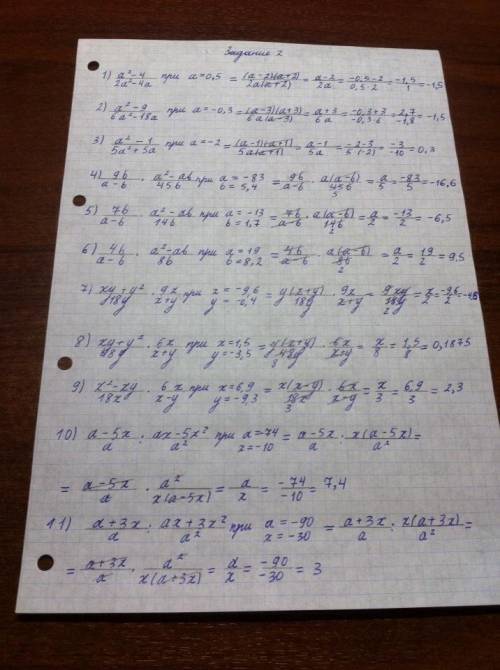 Задание 2
1) a²-4 / 2a²-4a при a=0,5 = (a-2)(a+2) / 2a(a+2) = a-2 / 2a = -0,5-2 / 0,5·2 = -1,5 / 1 = -1,5
2) a²-9 / 6a²-18a при a=-0,3 = (a-3)(a+3) / 6a(a-3) = a+3 / 6a = -0,3+3 / -0,3·6 = 2,7 / -1,8 = -1,5
3) a²-1 / 5a²+5a при a=-2 = (a-1)(a+1) / 5a(a+1) = a-1 / 5a = -2-3 / 5·(-2) = -3 / -10 = 0,3
4) 9b / a-b · a²-ab / 45b при a=-83 b=5,4 = 9b / a-b · a(a-b) / 45b 5 = a / 5 = -83 / 5 = -16,6
5) 7b / a-b · a²-ab / 14b при a=-13 b=1,7 = 7b / a-b · a(a-b) / 14b 2 = a / 2 = -13 / 2 = -6,5
6) 4b / a-b · a²-ab / 8b при a=19 b=8,2 = 4b / a-b · a(a-b) / 8b 2 = a / 2 = 19 / 2 = 9,5
7) xy+y² / 18y · 9x / x+y при x=-9,6 y=-0,4 = y(x+y) / 18y · 9x / x+y = 9xy / 18y 2 = x / 2 = -9,6 / 2 =
8) xy+y² / 48y · 6x / x+y при x=1,5 y=-3,5 = y(x+y) / 48y 8 · 6x / x+y = x / 8 = 1,5 / 8 = 0,1875
9) x²-xy / 18x · 6x / x-y при x=6,9 y=-9,3 = x(x-y) / 18x 3 · 6x / x-y = x / 3 = 6,9 / 3 = 2,3
10) a-5x / a : ax-5x² / a² при a=-74 x=-10 = a-5x / a : x(a-5x) / a² =
= a-5x / a · a² / x(a-5x) = a / x = -74 / -10 = 7,4
11) a+3x / a : ax+3x² / a² при a=-90 x=-30 = a+3x / a : x(a+3x) / a² =
= a+3x / a · a² / x(a+3x) = a / x = -90 / -30 = 3